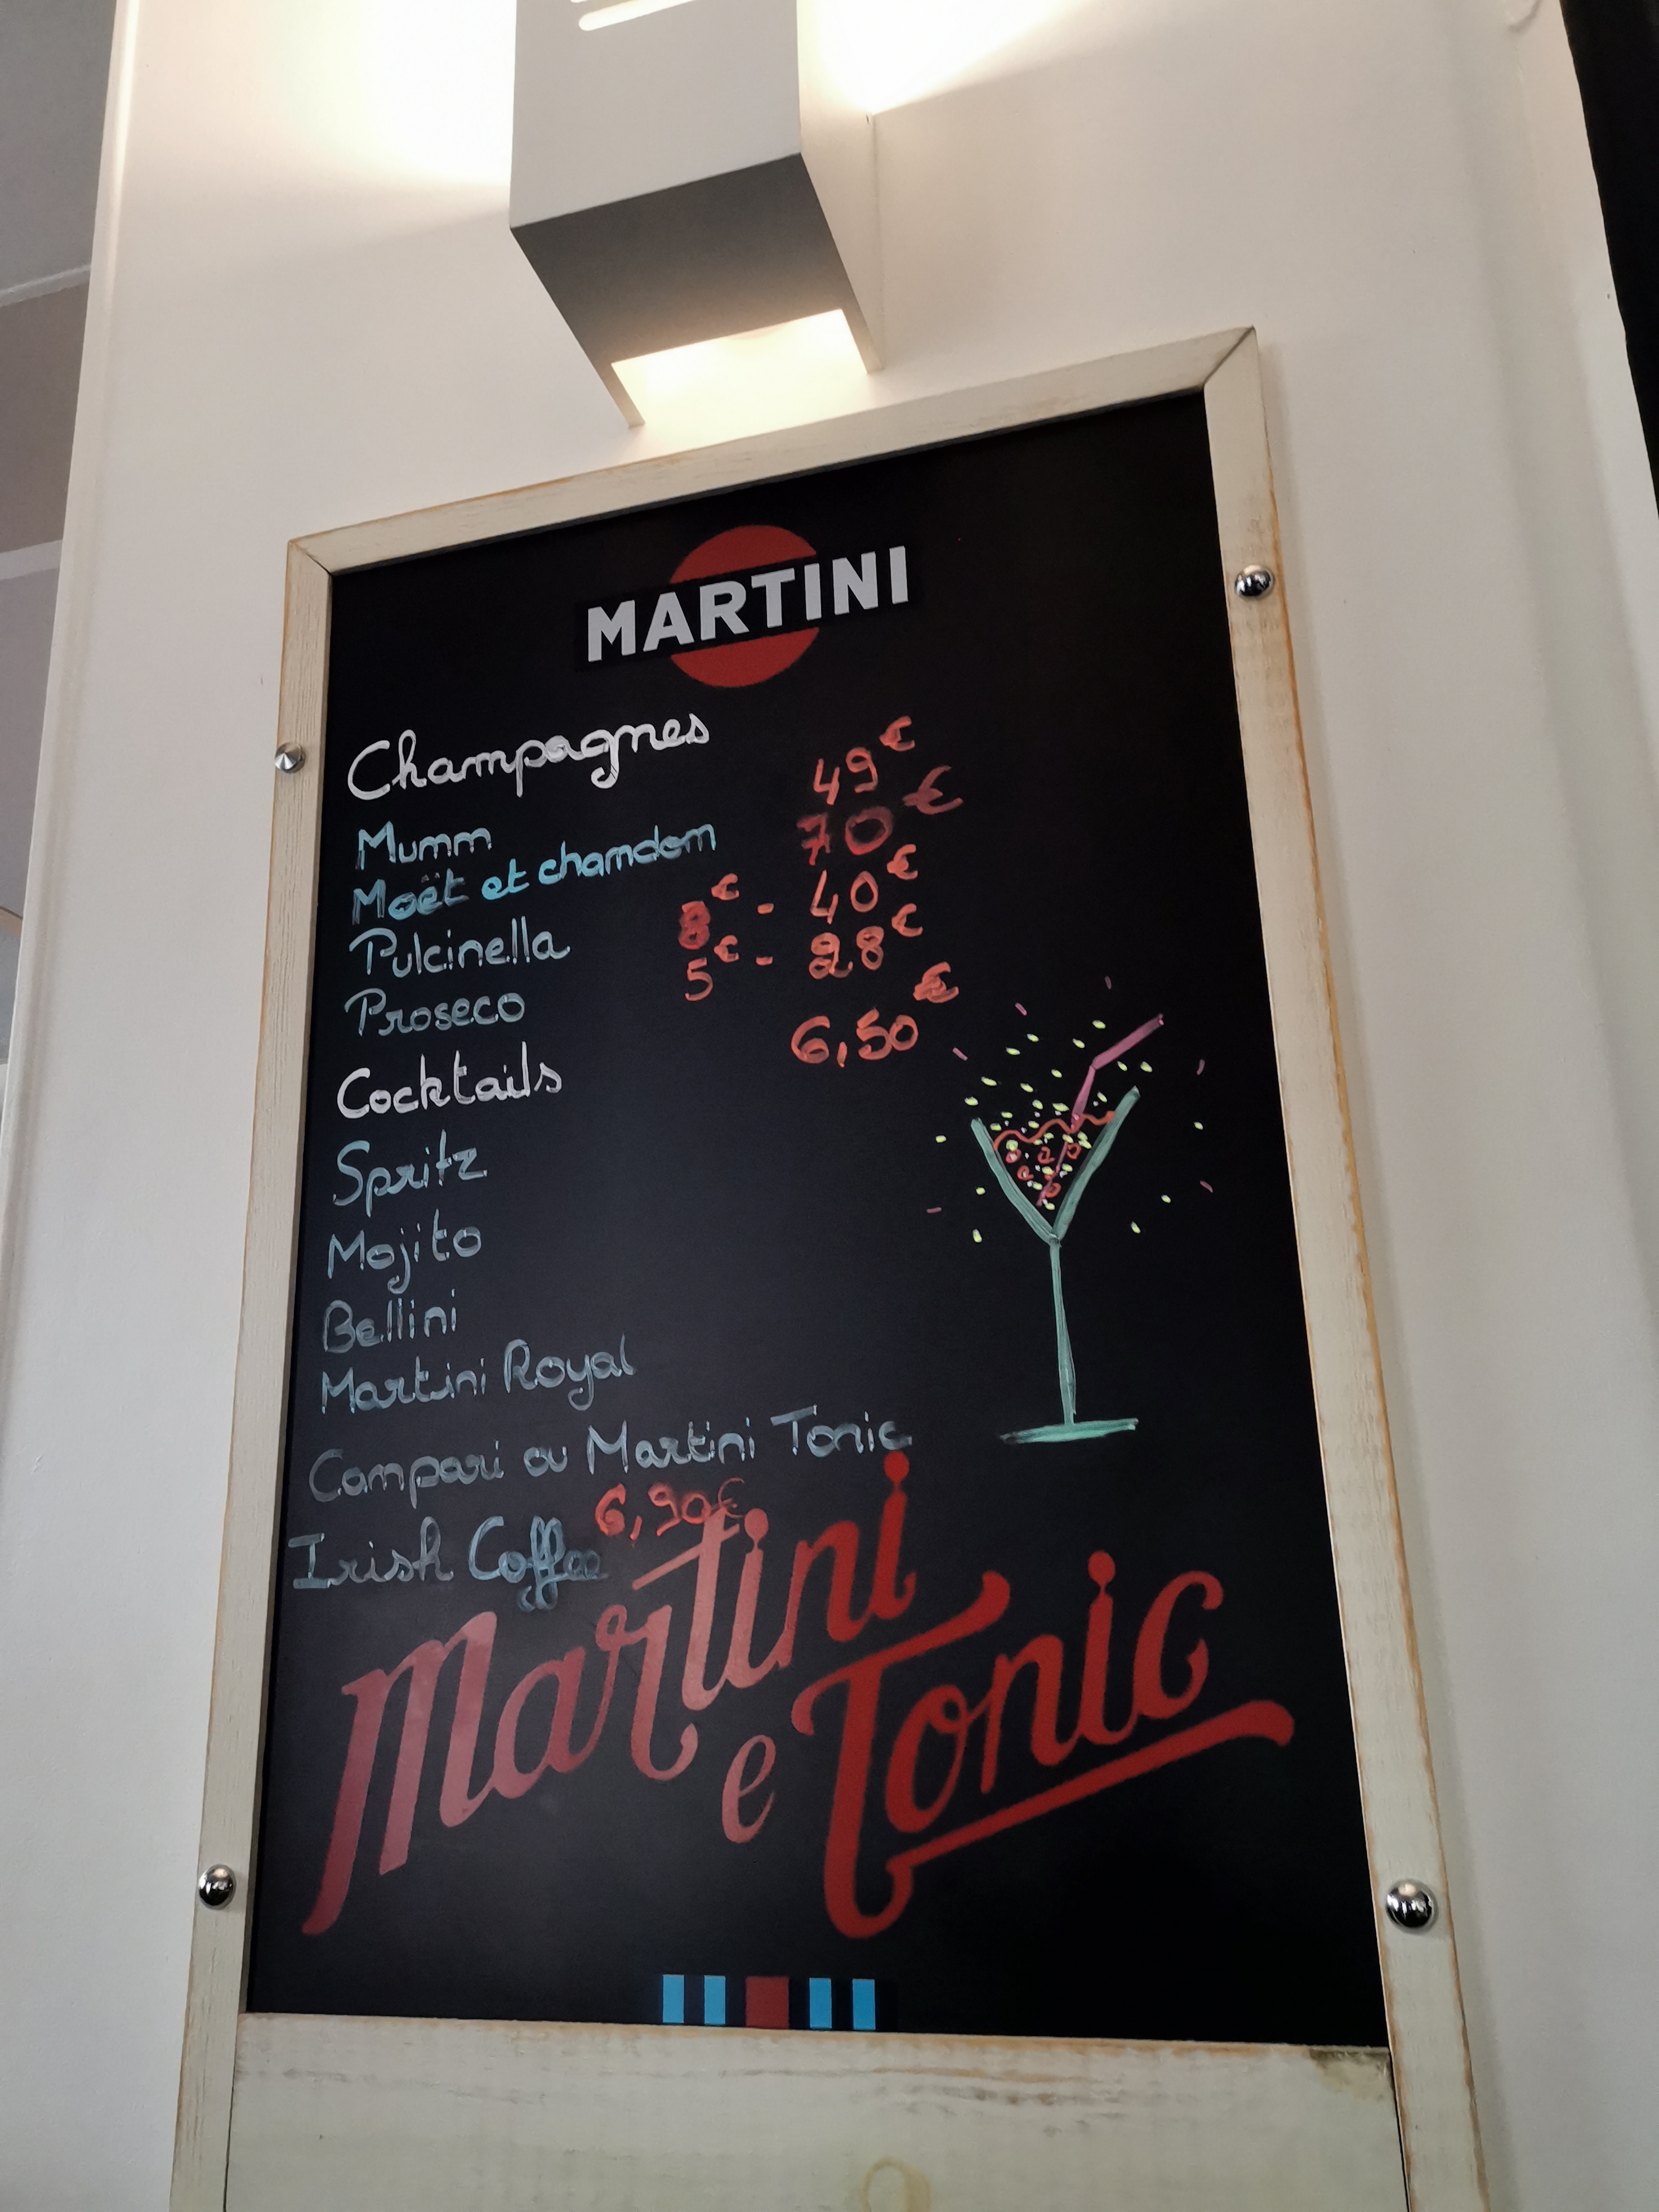 MARTINI
Champagnes
Mumm 49€
Moët et chamdom 70€
Pulcinella 8€ - 40€
Proseco 5€ - 28€
Cocktails 6,50€
Spritz
Mojito
Bellini
Martini Royal
Campari ou Martini Tonic
Irish Coffee 6,90€
Martini
e Tonic